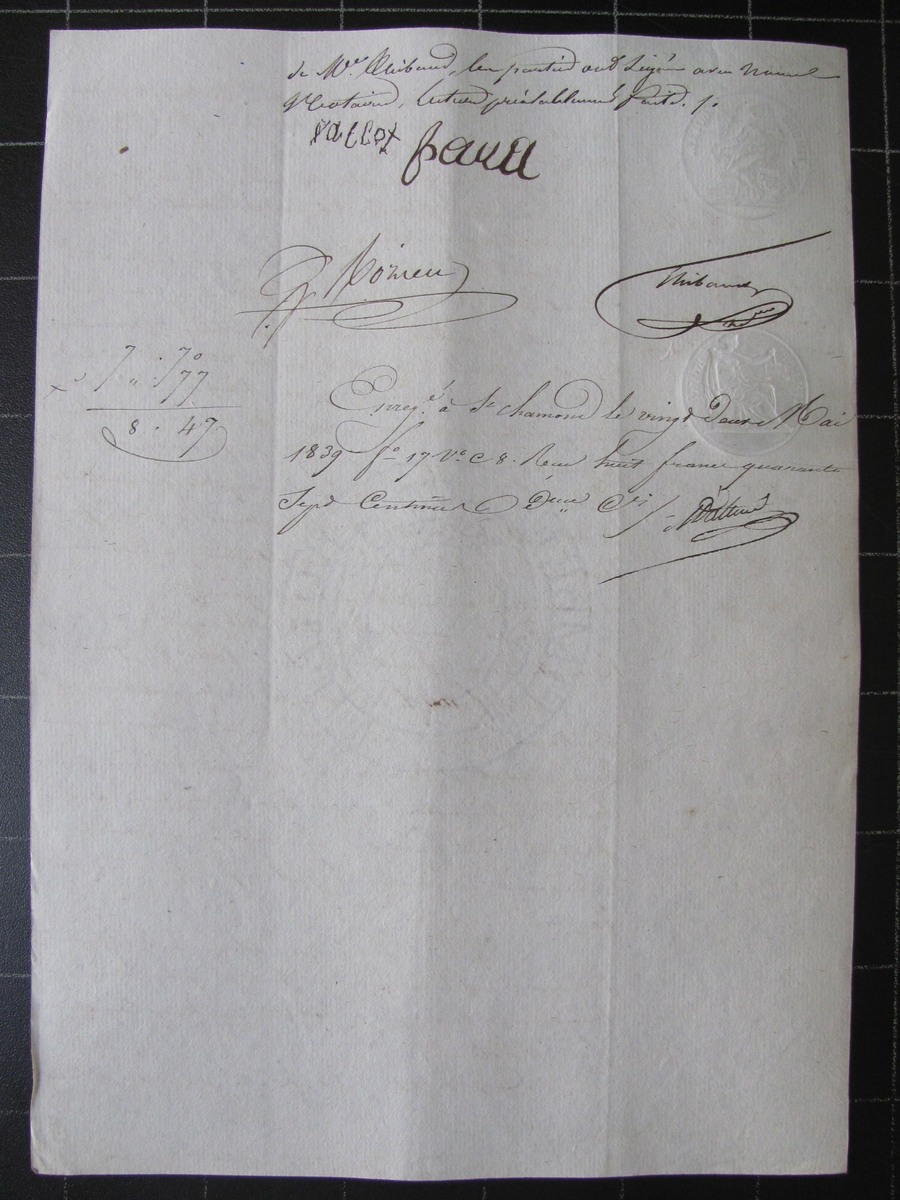 de Me Thibaud, les parties ont signé avec nous
Notaires, lecture préalablement faite. /.
Thibaud
7 . 70
" . 77
8 . 47
Enregé à St chamond le vingt deux Mai
1839 fo 17 Vo C 8. Reçu huit francs quarante
Sept Centimes Dme Cis